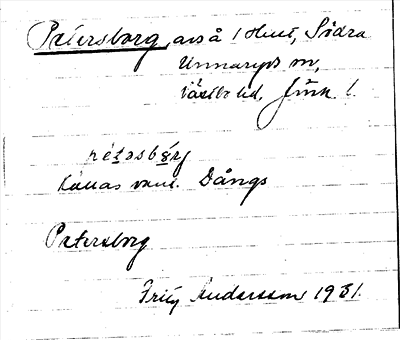 Petersborg, avs å 1 Hult, Södra
Unnaryds sn,
Västbo hd, Jönk l.
pétəsbǽrj
Kallas vanl. Dångs
Petersborg
Frits Andersson 1931.